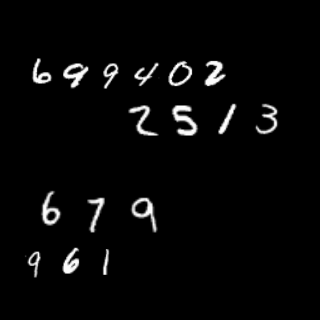 699402
2513
679
961